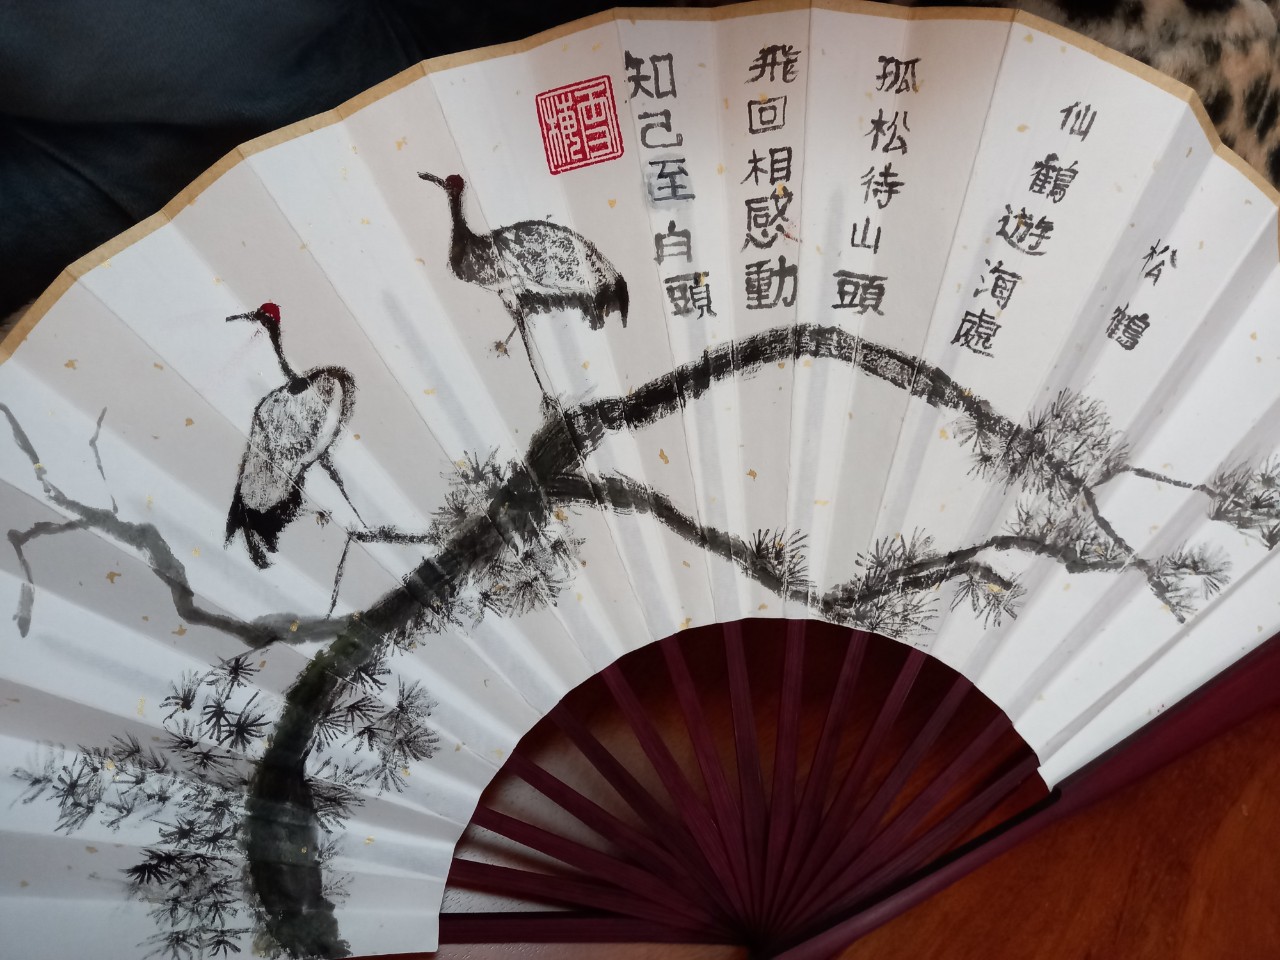 松鶴
仙鶴遊海處
孤松待山頭
飛回相感動
知己至白頭
雪梅